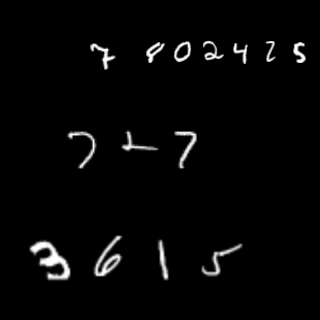 7 802425
7+7
3615